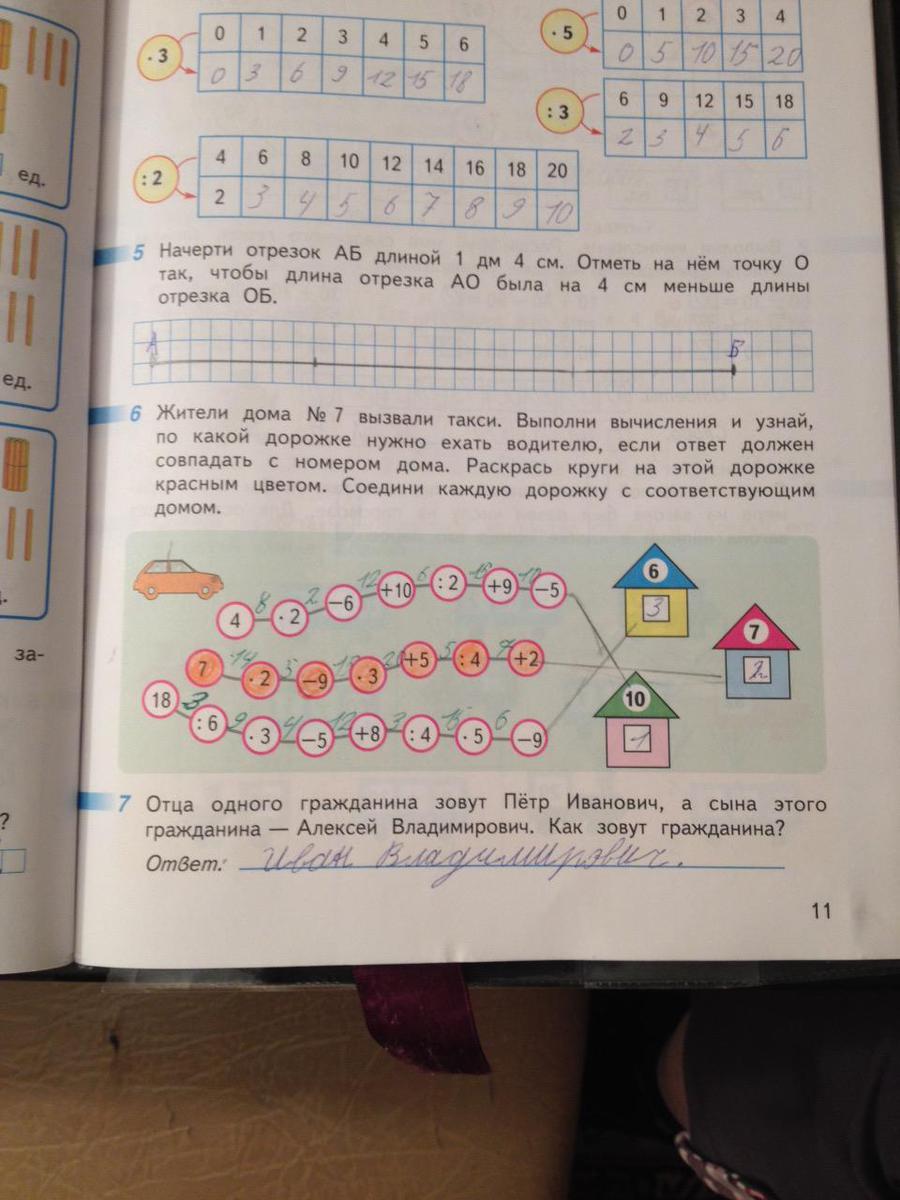 · 3 0 1 2 3 4 5 6
0 3 6 9 12 15 18
· 5 0 1 2 3 4
0 5 10 15 20
: 3 6 9 12 15 18
2 3 4 5 6
: 2 4 6 8 10 12 14 16 18 20
2 3 4 5 6 7 8 9 10
ед.
ед.
за-
?
5 Начерти отрезок АБ длиной 1 дм 4 см. Отметь на нём точку О
так, чтобы длина отрезка АО была на 4 см меньше длины
отрезка ОБ.
А Б
6 Жители дома № 7 вызвали такси. Выполни вычисления и узнай,
по какой дорожке нужно ехать водителю, если ответ должен
совпадать с номером дома. Раскрась круги на этой дорожке
красным цветом. Соедини каждую дорожку с соответствующим
домом.
4 8 · 2 2 −6 12 +10 6 : 2 15 +9 10 −5
7 14 · 2 5 −9 15 · 3 20 +5 5 : 4 7 +2
18 3 : 6 9 · 3 4 −5 12 +8 3 : 4 15 · 5 6 −9
6
3
7
2
10
1
7 Отца одного гражданина зовут Пётр Иванович, а сына этого
гражданина — Алексей Владимирович. Как зовут гражданина?
Ответ: Иван Владимирович.
11